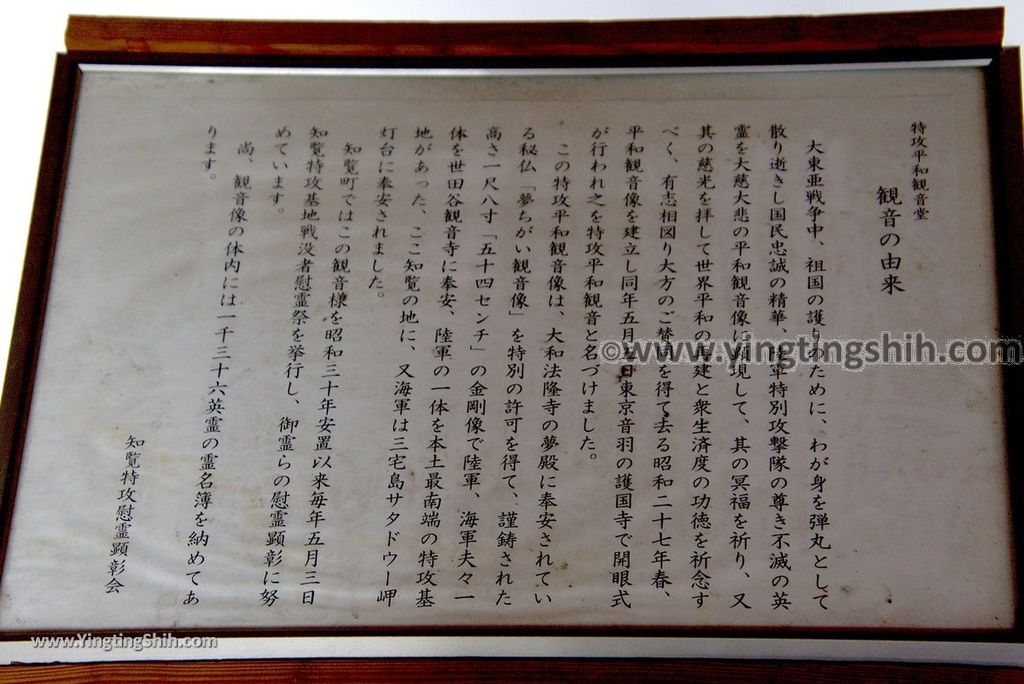 特攻平和観音堂
観音の由来
大東亜戦争中、祖国の護りのために、わが身を弾丸として
散り逝きし国民忠誠の精華、陸軍特別攻撃隊の尊き不滅の英
霊を大慈大悲の平和観音像に顕現して、其の冥福を祈り、又
其の慈光を拝して世界平和の再建と衆生済度の功徳を祈念す
べく、有志相図り大方のご賛同を得て去る昭和二十七年春、
平和観音像を建立し同年五月 日東京音羽の護国寺で開眼式
が行われ之を特攻平和観音と名づけました。
この特攻平和観音像は、大和法隆寺の夢殿に奉安されてい
る秘仏「夢ちがい観音像」を特別の許可を得て、謹鋳された
高さ一尺八寸「五十四センチ」の金剛像で陸軍、海軍夫々一
体を世田谷観音寺に奉安、陸軍の一体を本土最南端の特攻基
地があった、ここ知覧の地に、又海軍は三宅島サタドウー岬
灯台に奉安されました。
知覧町ではこの観音様を昭和三十年安置以来毎年五月三日
知覧特攻基地戦没者慰霊祭を挙行し、御霊らの慰霊顕彰に努
めています。
尚、観音像の体内には一千三十六英霊の霊名簿を納めてあ
ります。
知覧特攻慰霊顕彰会
©www.yingtingshih.com
www.YingtingShih.com